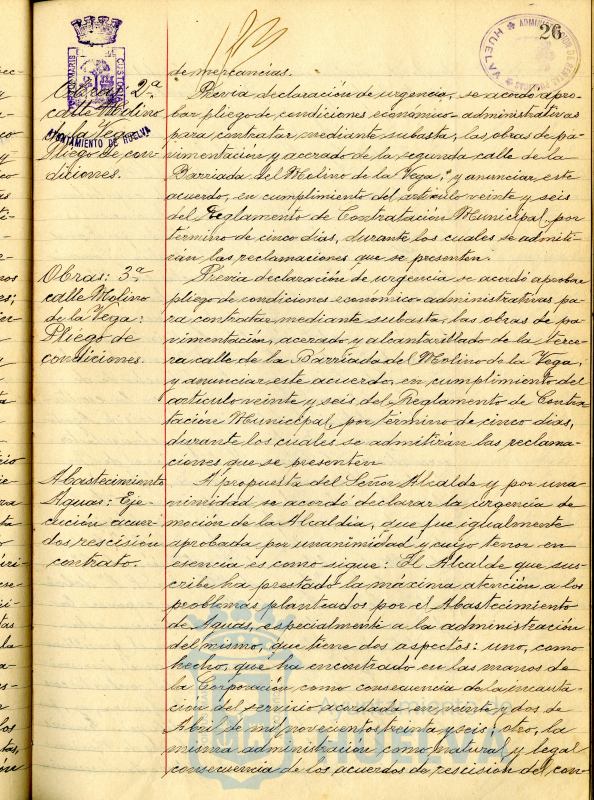 26
ADMINISTRACION DE
HUELVA
CUSTODIA
AYUNTAMIENTO DE HUELVA
de mercancias.
Obras: 2ª
calle Molino
de la Vega:
Pliego de con-
diciones.
Previa declaración de urgencia, se acordó apro-
bar pliego de condiciones económico-administrativas
para contratar mediante subasta, las obras de pa-
vimentación y acerado de la segunda calle de la
Barriada del Molino de la Vega; y anunciar este
acuerdo, en cumplimiento del artículo veinte y seis
del Reglamento de Contratación Municipal, por
término de cinco días, durante los cuales se admiti-
rán las reclamaciones que se presenten.
Obras: 3ª
calle Molino
de la Vega:
Pliego de
condiciones.
Previa declaración de urgencia se acordó aprobar
pliego de condiciones económico-administrativas pa-
ra contratar mediante subasta, las obras de pa-
vimentación, acerado y alcantarillado de la terce-
ra calle de la Barriada del Molino de la Vega;
y anunciar este acuerdo, en cumplimiento del
artículo veinte y seis del Reglamento de Contra-
tación Municipal, por término de cinco días,
durante los cuales se admitirán las reclama-
ciones que se presenten
Abastecimiento
Aguas: Eje-
cución acuer-
dos rescisión
contrato.
A propuesta del Señor Alcalde y por una-
nimidad se acordó declarar la urgencia de
moción de la Alcaldia, que fue igualmente
aprobada por unanimidad y cuyo tenor en
esencia es como sigue: El Alcalde que sus-
cribe ha prestado la máxima atención a los
problemas planteados por el Abastecimiento
de Aguas, especialmente a la administración
del mismo, que tiene dos aspectos: uno, como
hecho, que ha encontrado en las manos de
la Corporación como consecuencia de la incauta-
ción del servicio acordada en veinte y dos de
Abril de mil novecientos treinta y seis; otro, la
misma administración como natural y legal
consecuencia de los acuerdos de rescisión del con-
HUELVA